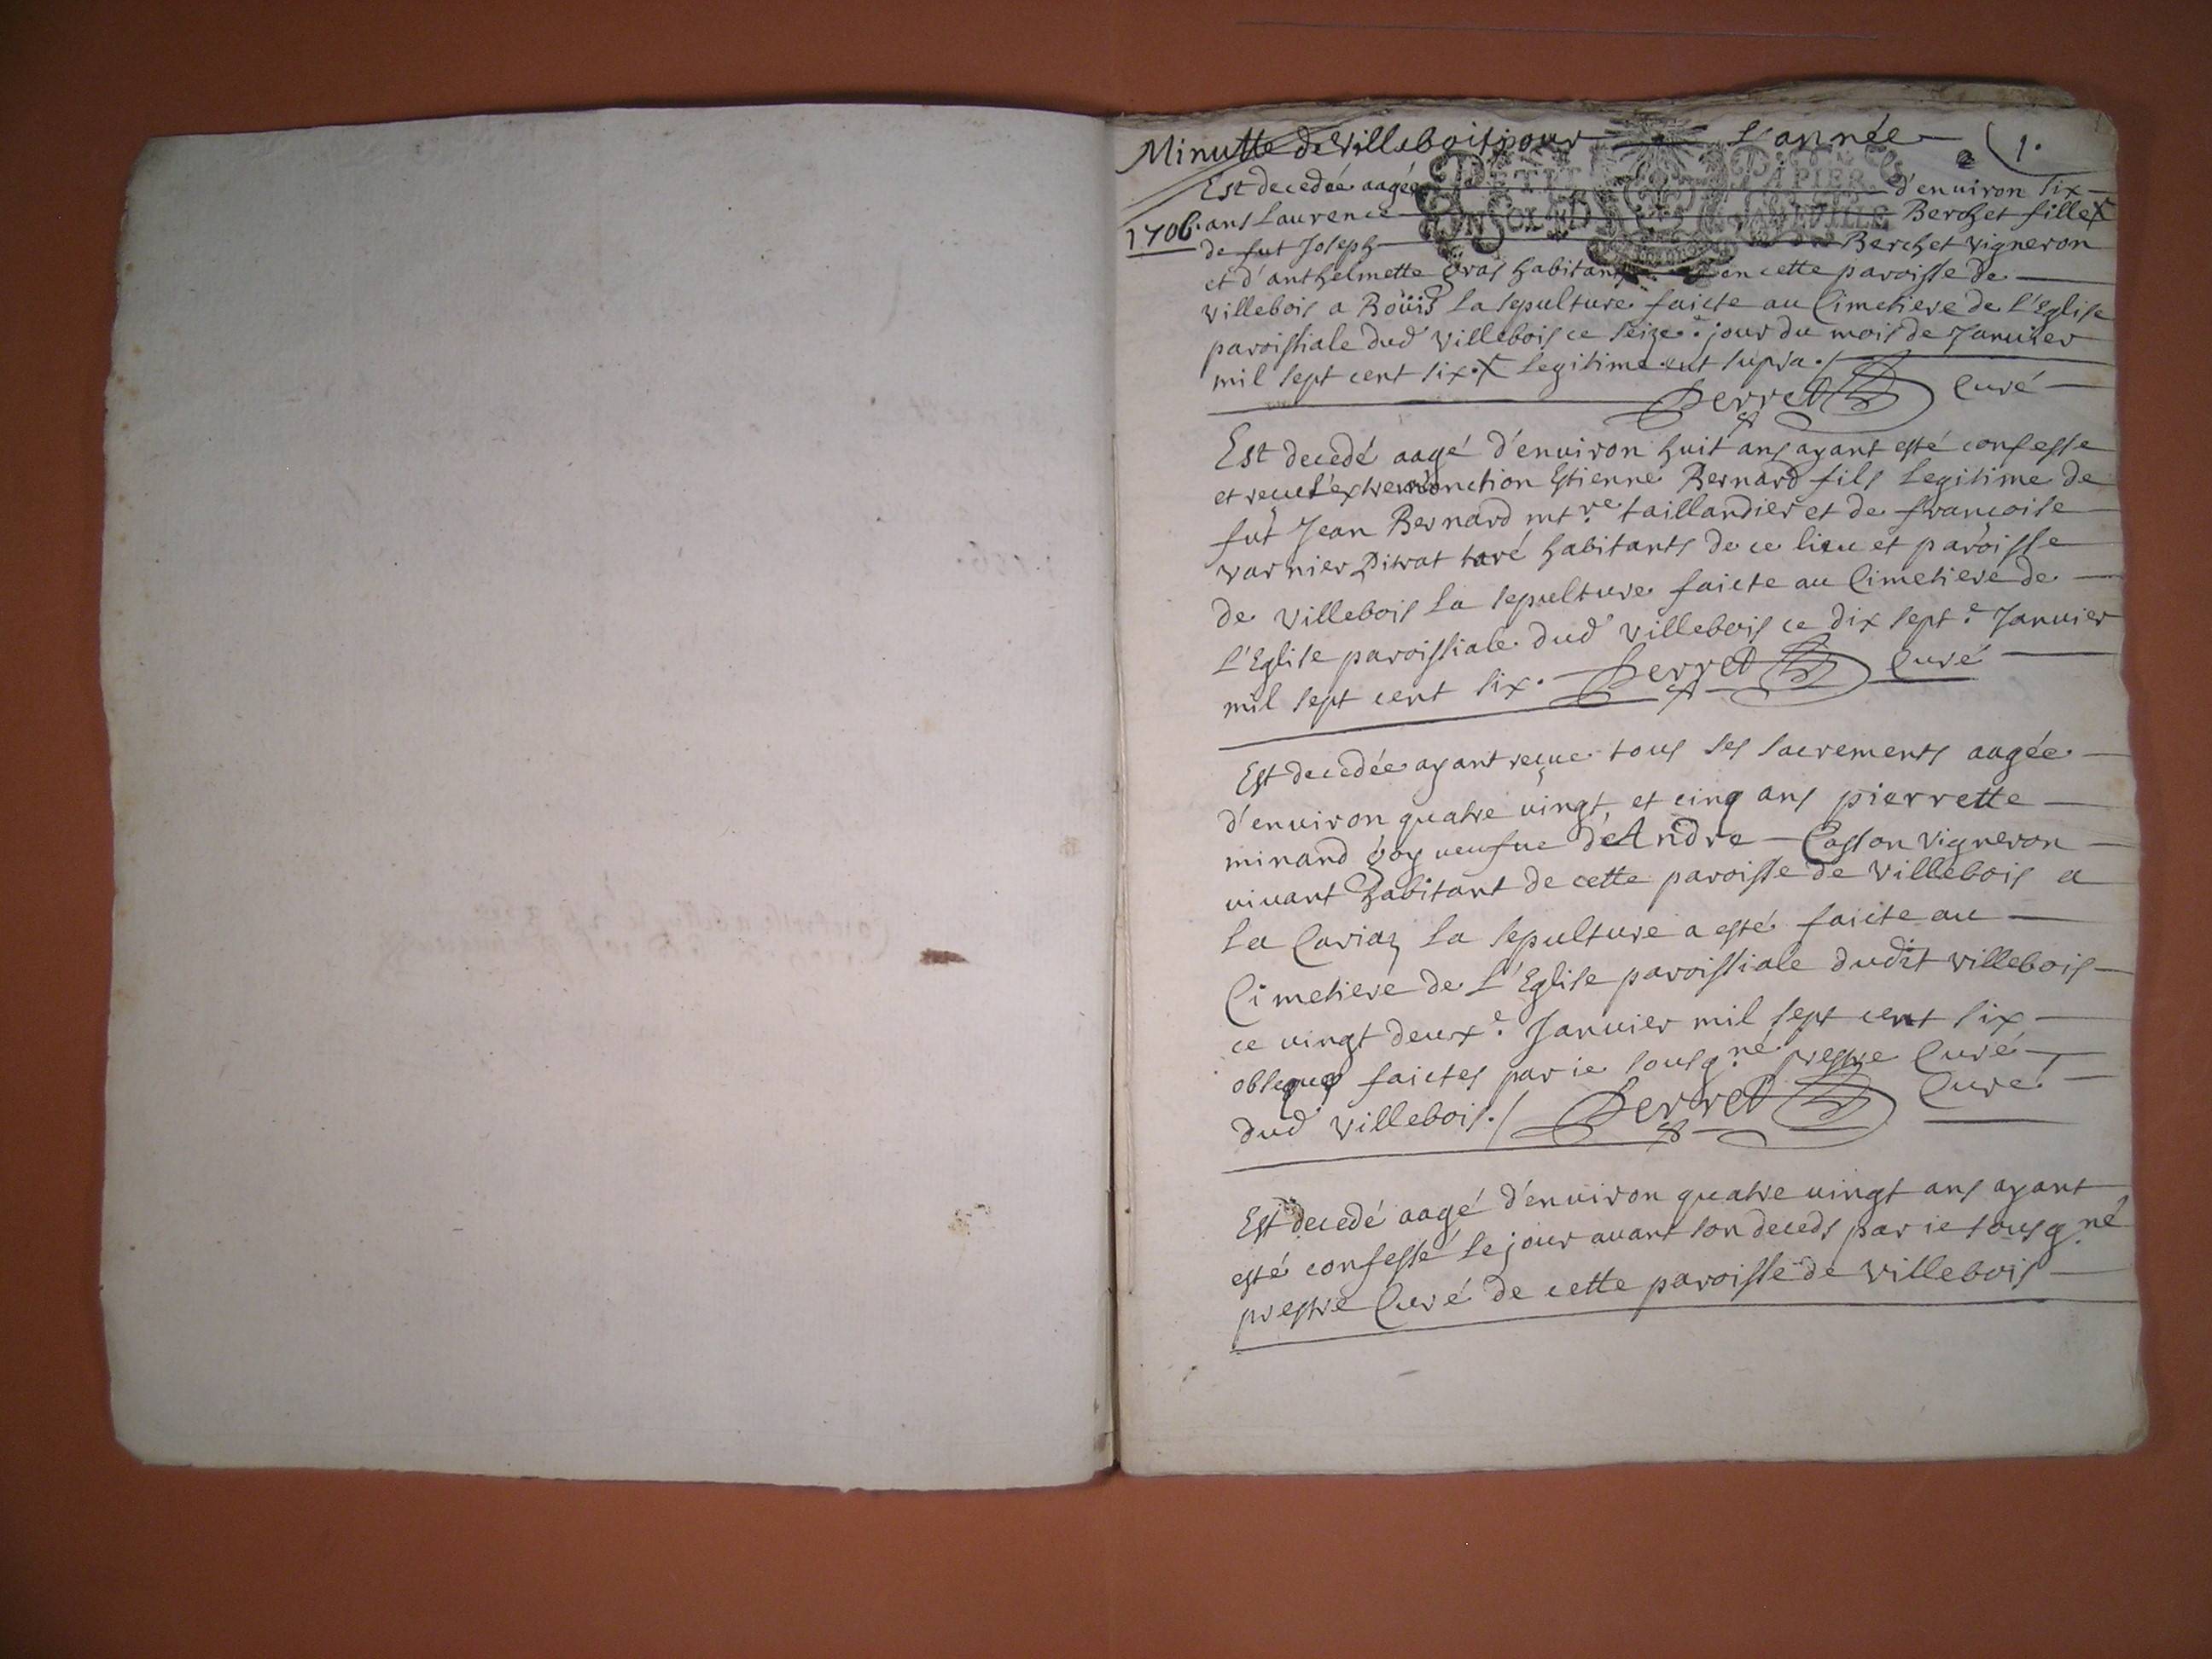 Minutte de Villebois pour l'année 1.
PETIT PAPIER
UN SOL 4 D
Est decedée aagée d'enuiron six
1706. ans Laurence Berchet fille X
de fut Joseph Berchet vigneron
et d'anthelmette gras habitants en cette paroisse de
villebois a Boüis La sepulture faicte au Cimetiere de l'Eglise
paroissiale dud villebois ce seize.e jour du mois de Januier
mil sept cent six. X Legitime. ut supra./.
Perret Curé
Est decedé aagé d'enuiron huit ans ayant esté confesse
et reçu L'extremonction Estienne Bernard fils Legitime de
fut Jean Bernard mtre taillandier et de francoise
varnier Pitrat taré habitants de ce lieu et paroisse
de villebois La sepulture faicte au Cimetiere de
L'Eglise paroissiale dud villebois ce dix sept.e Januier
mil sept cent six. Perret Curé
Est decedée ayant reçue tous ses sacrements aagée
d'enuiron quatre uingt et cinq ans pierrette
minand goy ueufue d'Andre Casson vigneron
uiuant habitant de cette paroisse de villebois a
La Cariaz La sepulture a esté faicte au
Cimetiere de L'Eglise paroissiale dudit villebois
ce uingt deux.e Januier mil sept cent six
obseques faictes par ie sousg.né prestre Curé
dud villebois./. Perret Curé
Est decedé aagé d'enuiron quatre uingt ans ayant
esté confessé le jour auant son deceds par ie sousg.né
prestre Curé de cette paroisse de villebois